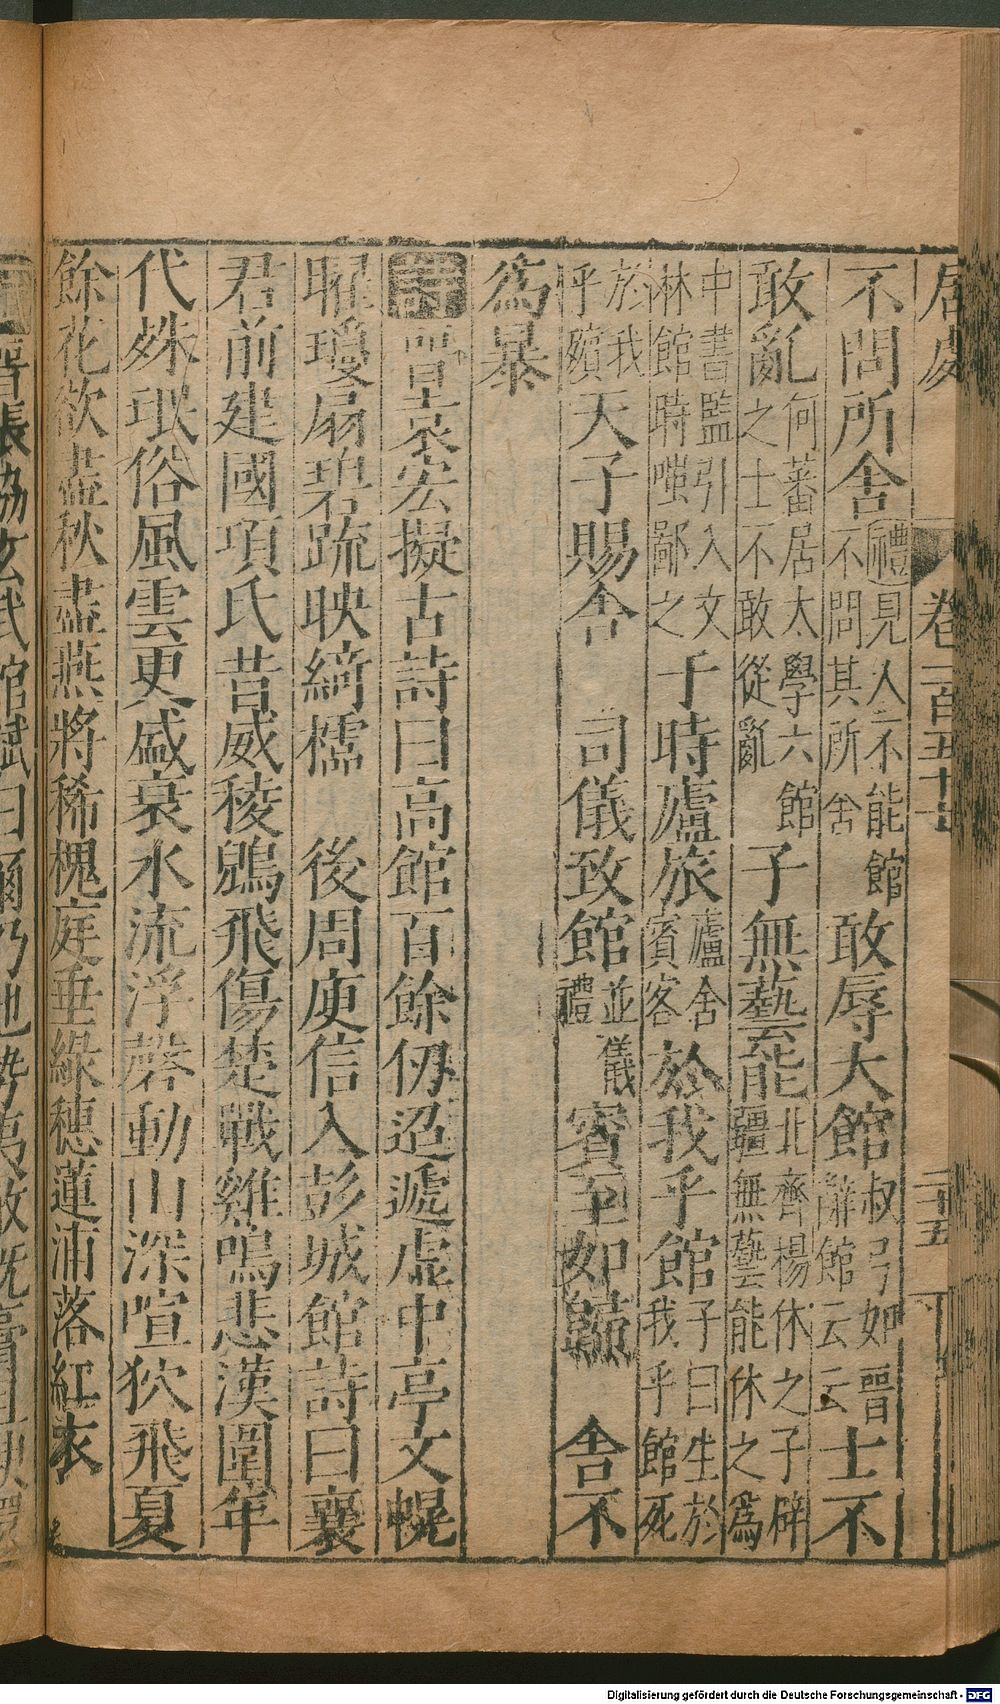 居處 卷一百五十七 二十五
不問所舍禮見人不能館不問其所舍敢辱大館叔弓如晉辭館云云士不
敢亂何蕃居太學六館之士不敢從亂子無藝能北齊楊休之子辟疆無藝能休之爲
中書監引入文林館時嗤鄙之于時廬旅廬舍賓客於我乎館子曰生於我乎館死
於我乎殯天子賜舍 司儀致館並儀禮賓至如歸 舍不
爲暴
詩晉袁宏擬古詩曰高館百餘仞迢遞虛中亭文幌
曜瓊扇碧疏映綺櫺 後周庾信入彭城館詩曰襄
君前建國項氏昔威稜鵶飛傷楚戰雞鳴悲漢圍年
代殊珉俗風雲更盛衰水流浮磬動山深喧狄飛夏
餘花欲盡秋盡燕將稀槐庭垂綠穗蓮浦落紅衣
晉張協玄武館賦曰爾乃地勢夷敞既膏且
Digitalisierung gefördert durch die Deutsche Forschungsgemeinschaft - DFG